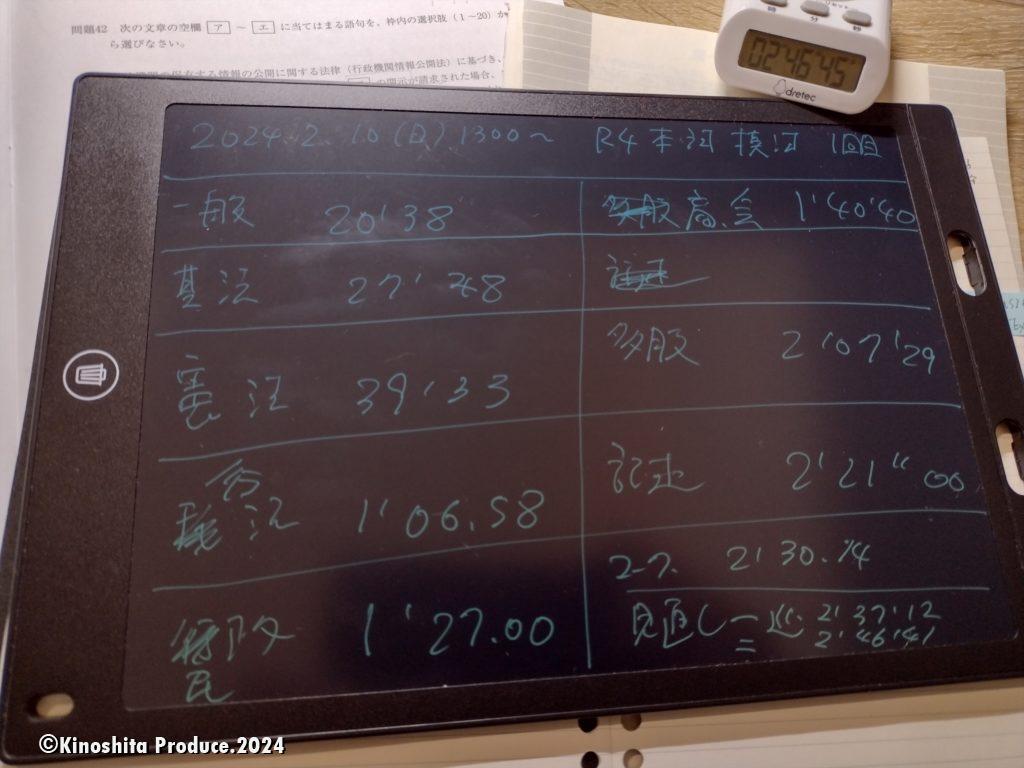 問題42 次の文章の空欄 ア ～ エ に当てはまる語句を、枠内の選択肢（1～20）か
ら選びなさい。
の保有する情報の公開に関する法律（行政機関情報公開法）に基づき、
の開示が請求された場合、
分
秒
024645
dretec
2024.2.10(日).1300～ R4本試 模試 1回目
一般 20'38
基法 27'48
憲法 39'33
行法 1'06.58
民 1'27.00
商、会 1'40'40
多股 2'07'29
記述 2'21"00
2'30.14
見直し 一巡 2'37'12
二 2'46'41
©Kinoshita Produce.2024